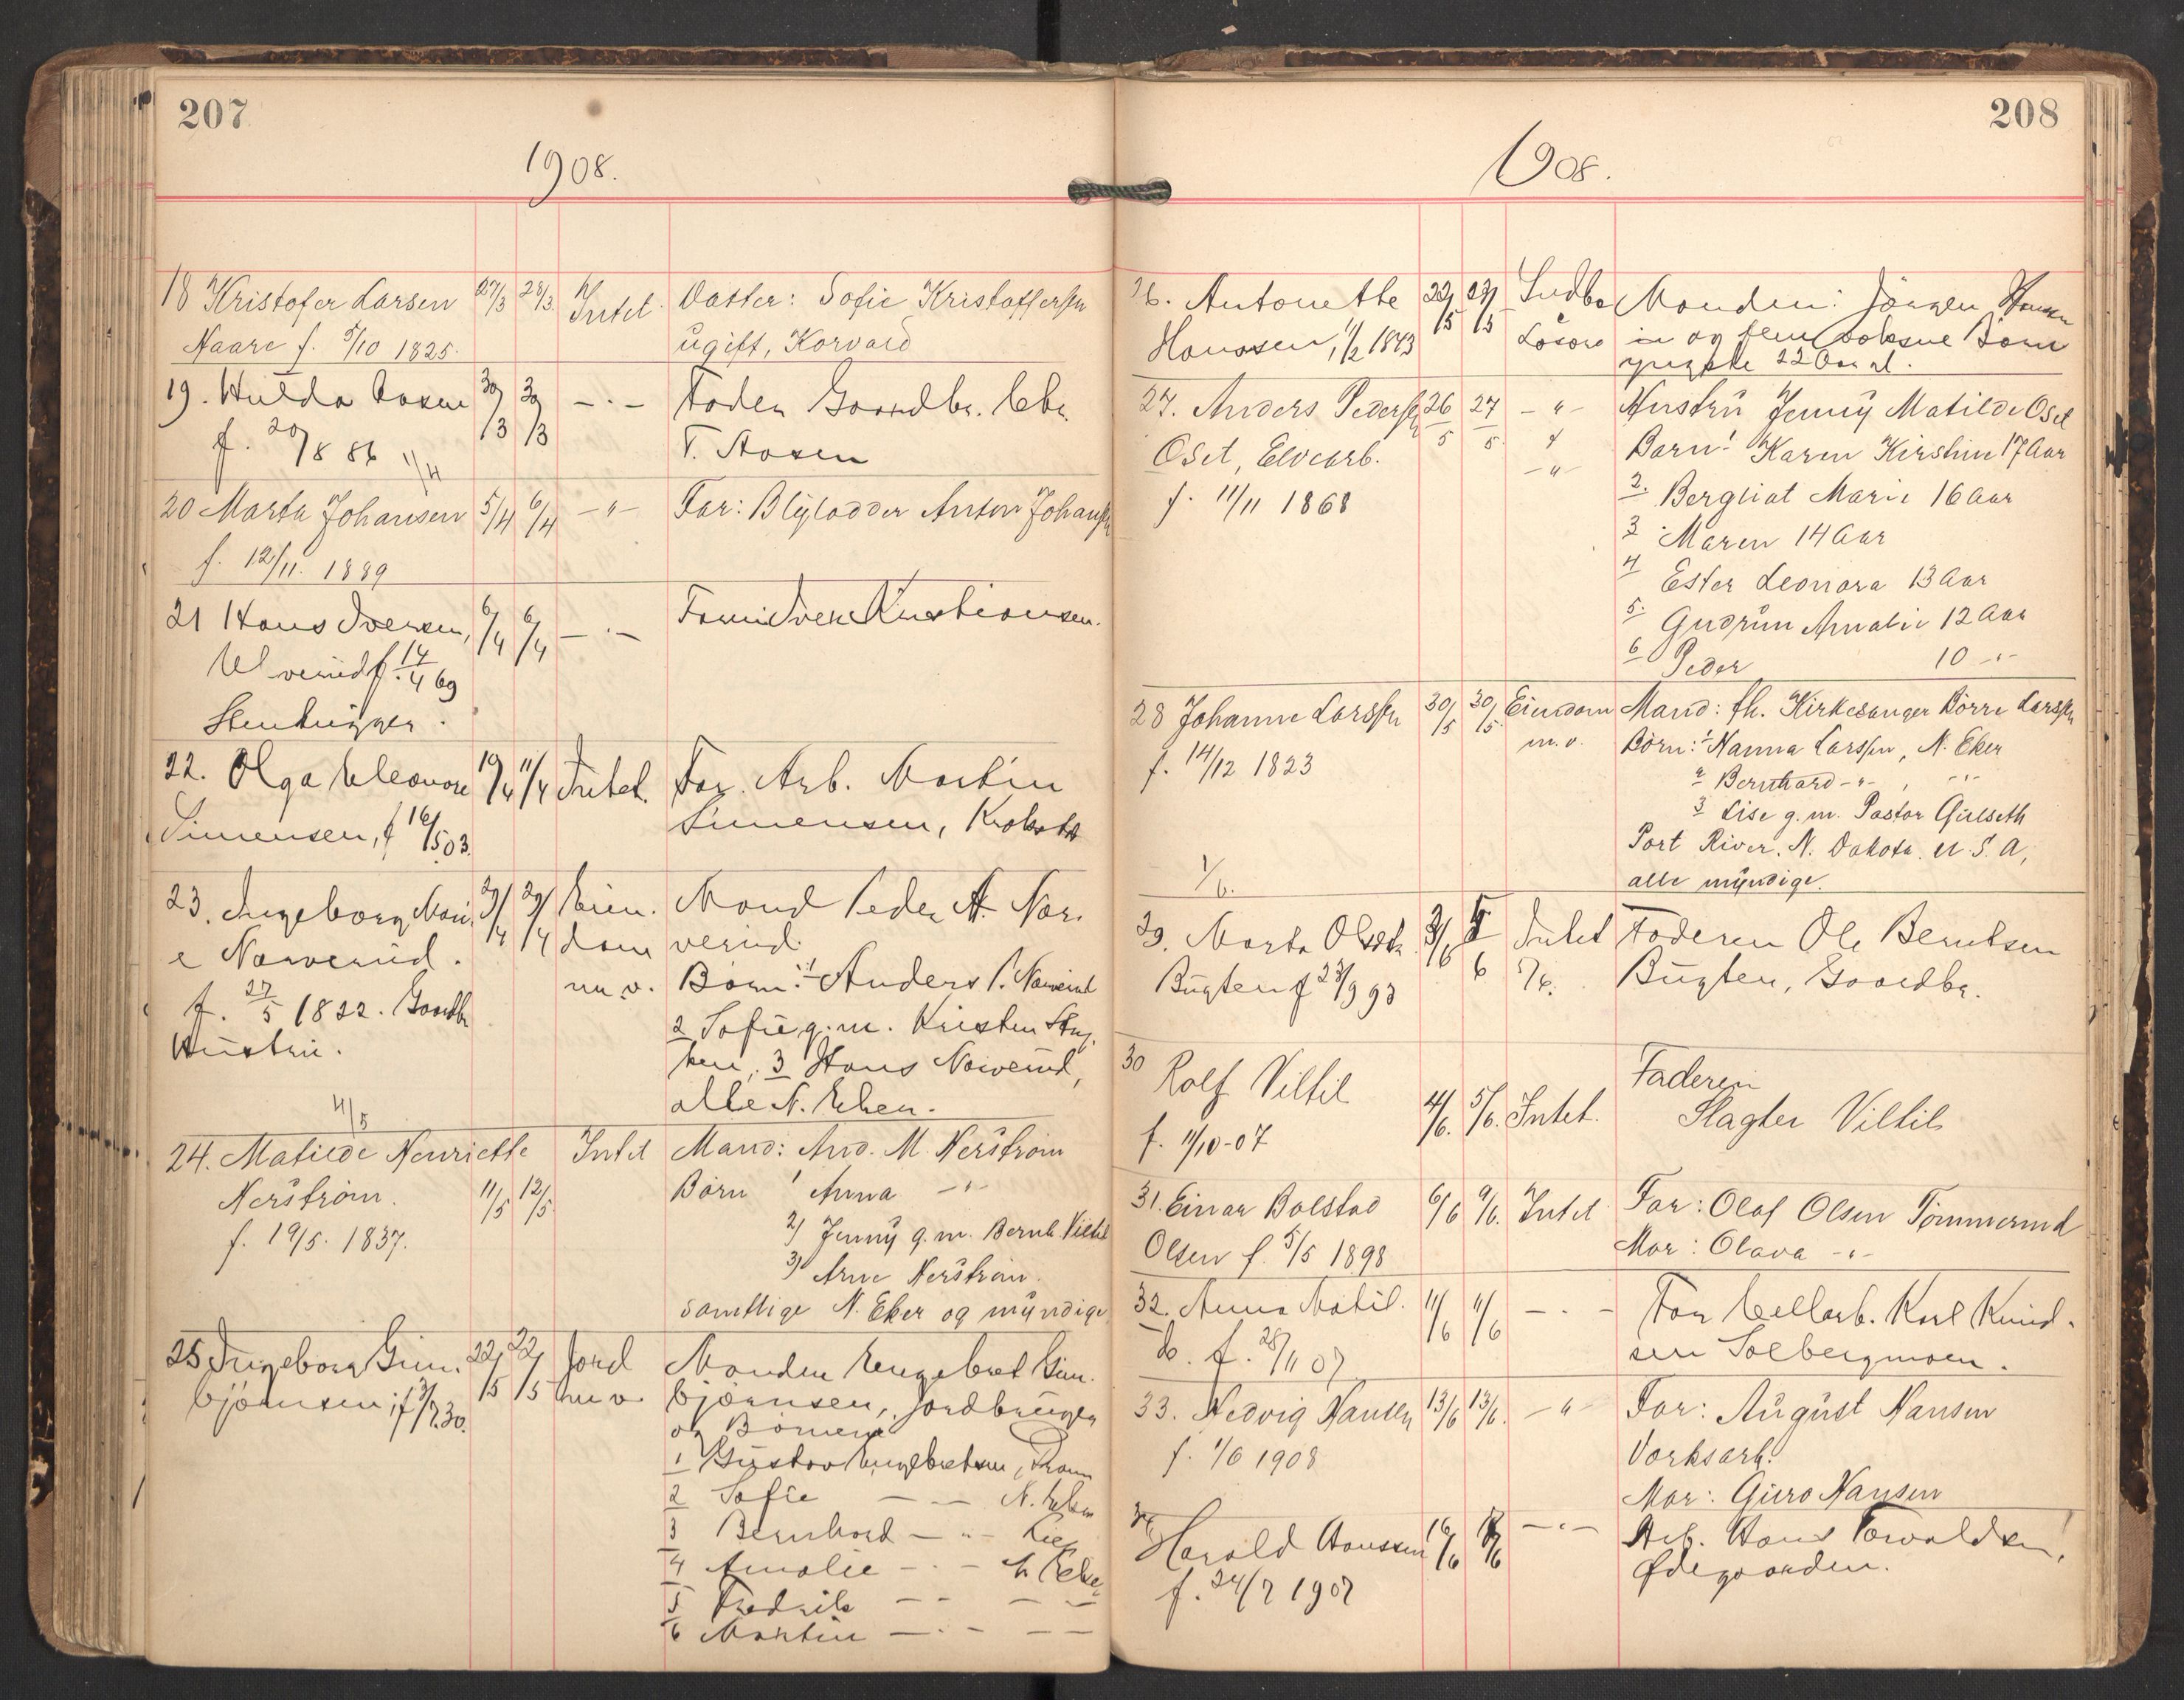 207
1908.
18 Kristofer Larsen 27/3 28/3 Intet. Datter: Sofie Kristoffersen
Haare f. 5/10 1825. ugift, Korvald
19. Hulda Aasen 30/3 30/3 - . - Fader Gaardbr. Chr.
f. 20/8 86 1/4 T. Aasen
20 Marta Johansen 5/4 6/4 - " - Far: Blylodder Anton Johansen
f. 12/11. 1889
21 Hans Iversen, 6/4 6/4 - . - Iver Kristiansen.
f. 14/4 69
Stenhugger.
22. Olga Eleonore 10/4 11/4 Intet. Far. Arb. Martin
Simensen, f 16/5 03. Simensen, Krokstad
23. Ingeborg Mari 29/4 29/4 Eien. Mand Peder A. Nor.
e Norverud. dom verud.
m.v. Børn: 1 Anders P. Norverud
f. 27/5 1822. Gaardbr
2 Sofie g.m. Kristen
Hustru.
3 Hans Norverud,
alle N. Eker.
4/5
24. Matilde Henriette Intet Mand: And. M. Nerstrøm
Nerstrøm. 11/5 12/5 Børn 1 Anna - " -
f. 19/5. 1837. 2) Jenny g.m. Bernh. Viltil
3) Arne Nerstrøm.
samtlige N. Eker og myndige
25 Ingeborg Gun. 22/5 22/5 Jord Manden Engebret Gun.
bjørnsen, f 3/7 30. m.v. bjørnsen, Jordbruger
og Børnene
1 Gustav Engebretsen, Dram
2 Sofie - - N. Eker
3 Bernhard - " - Lier
4 Amalie - . - N. Eker
5 Fredrik - - - -
6 Martin - . - - -
208
1908.
26. Antonette 22/5 23/5 Indbo Manden: Jørgen Hansen
Hanssen, 1/2 1843 Løsøre og fem voksne Børn
yngste 22 Aar gl.
27. Anders Pedersen 26/5 27/5. - " - Hustru Jenny Matilde Oset
Oset, Elvearb. Barn 1 Karen Kirstine 17 Aar
- " -
f. 11/11 1868 2. Bergliot Marie 16 Aar
3 Maren 14 Aar
4 Ester Leonora 13 Aar
5. Gudrun Amalie 12 Aar
6 Peder 10 - " -
28 Johanne Larssen 30/5 30/5. Eiendom Mand: fh. Kirkesanger Børre Larssen
m.v. Børn: 1 Hanna Larssen, N. Eker
f. 14/12 1823
2 Bernhard - " - , - " -
3 Lise g.m. Pastor Gulseth
Port River. N. Dakota. U.S.A,
1/6. alle myndige.
29. Marta Olsdtr. 3/6 5/6 Intet Faderen Ole Berntsen
Bugten f 23/9 93 5/6. Bugten, Gaardbr.
30 Faderen
Rolf Viltil 4/6. 5/6. Intet. Slagter Viltil
f. 11/10-07
31. Einar Bolstad 6/6 9/6. Intet Far: Olaf Olsen Tømmerud
Olsen f. 5/5 1898 Mor: Olava - " -
32. Anna Matil. 11/6 11/6 - . - Far Cellarb. Karl Knud-
de. f. 28/11 07 sen Solbergmoen.
33. Hedvig Hansen 13/6 13/6. - " - Far: August Hansen
f. 1/6 1908 Værksarb.
Mor: Guro Hansen
34 Harald Hanssen 16/6 - " - Arb. Hans Torvaldsen,
f. 24/7 1907 Ødegaarden.